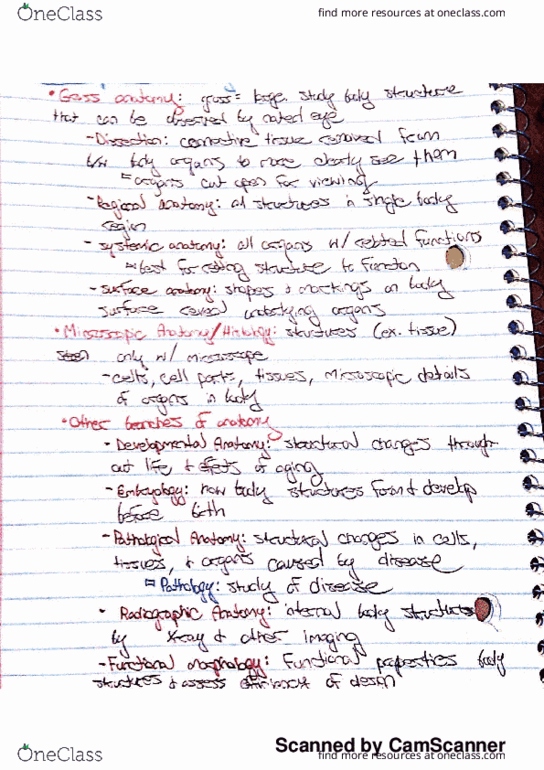 OneClass find more resources at oneclass.com
• Gross anatomy: gross = large. study body structure
that can be observed by naked eye
- Dissection: connective tissue removed from
b/w body organs to more clearly see them
organs cut open for viewing
- Regional Anatomy: all structures in single body
region
- systemic anatomy: all organs w/ related functions
best for relating structure to function
- surface anatomy: shapes & markings on body
surface reveal underlying organs
• Microscopic Anatomy/Histology: structures (ex. tissue)
only w/ microscope
- cells, cell parts, tissues, microscopic details
of organs in body
• Other branches of anatomy
- Developmental Anatomy: structural changes through
out life & effects of aging
- Embryology: how body structures form & develop
before birth
- Pathological Anatomy: structural changes in cells,
tissues, & organs caused by disease
Pathology: study of disease
- Radiographic Anatomy: internal body structures
by X-ray & other imaging
- Functional morphology: Functional properties body
structures & assess efficiency of design
Scanned by CamScanner
OneClass find more resources at oneclass.com